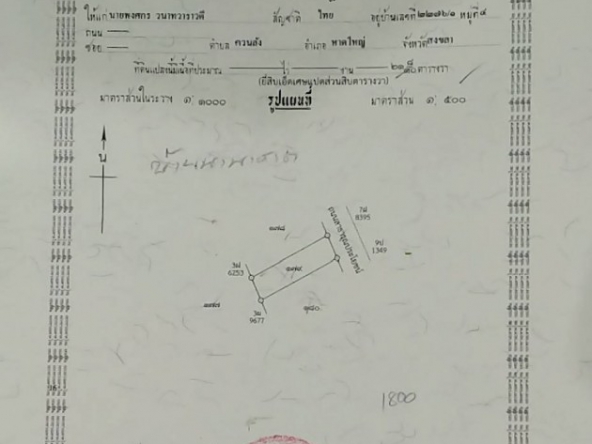 ให้แก่ นายพงศกร วนาทวาราวดี สัญชาติ ไทย อยู่บ้านเลขที่ หมู่ที่ ๔
ถนน
ซอย ตำบล ควนลัง อำเภอ หาดใหญ่ จังหวัด สงขลา
ที่ดินแปลงนี้มีเนื้อที่ประมาณ ไร่ งาน ๒๑ ๘/๑๐ ตารางวา
(ยี่สิบเอ็ดเศษแปดส่วนสิบตารางวา)
มาตราส่วนในระวาง ๑: ๑๐๐๐ รูปแผนที่ มาตราส่วน ๑: ๕๐๐
น
บ้านนานาชาติ
๑๗๘
ถนนสาธารณประโยชน์
7ฝ
8395
9ป
1349
3ฝ
6253
๑๗๙
๑๗๗
3ฝ
9677
๑๘๐
1800